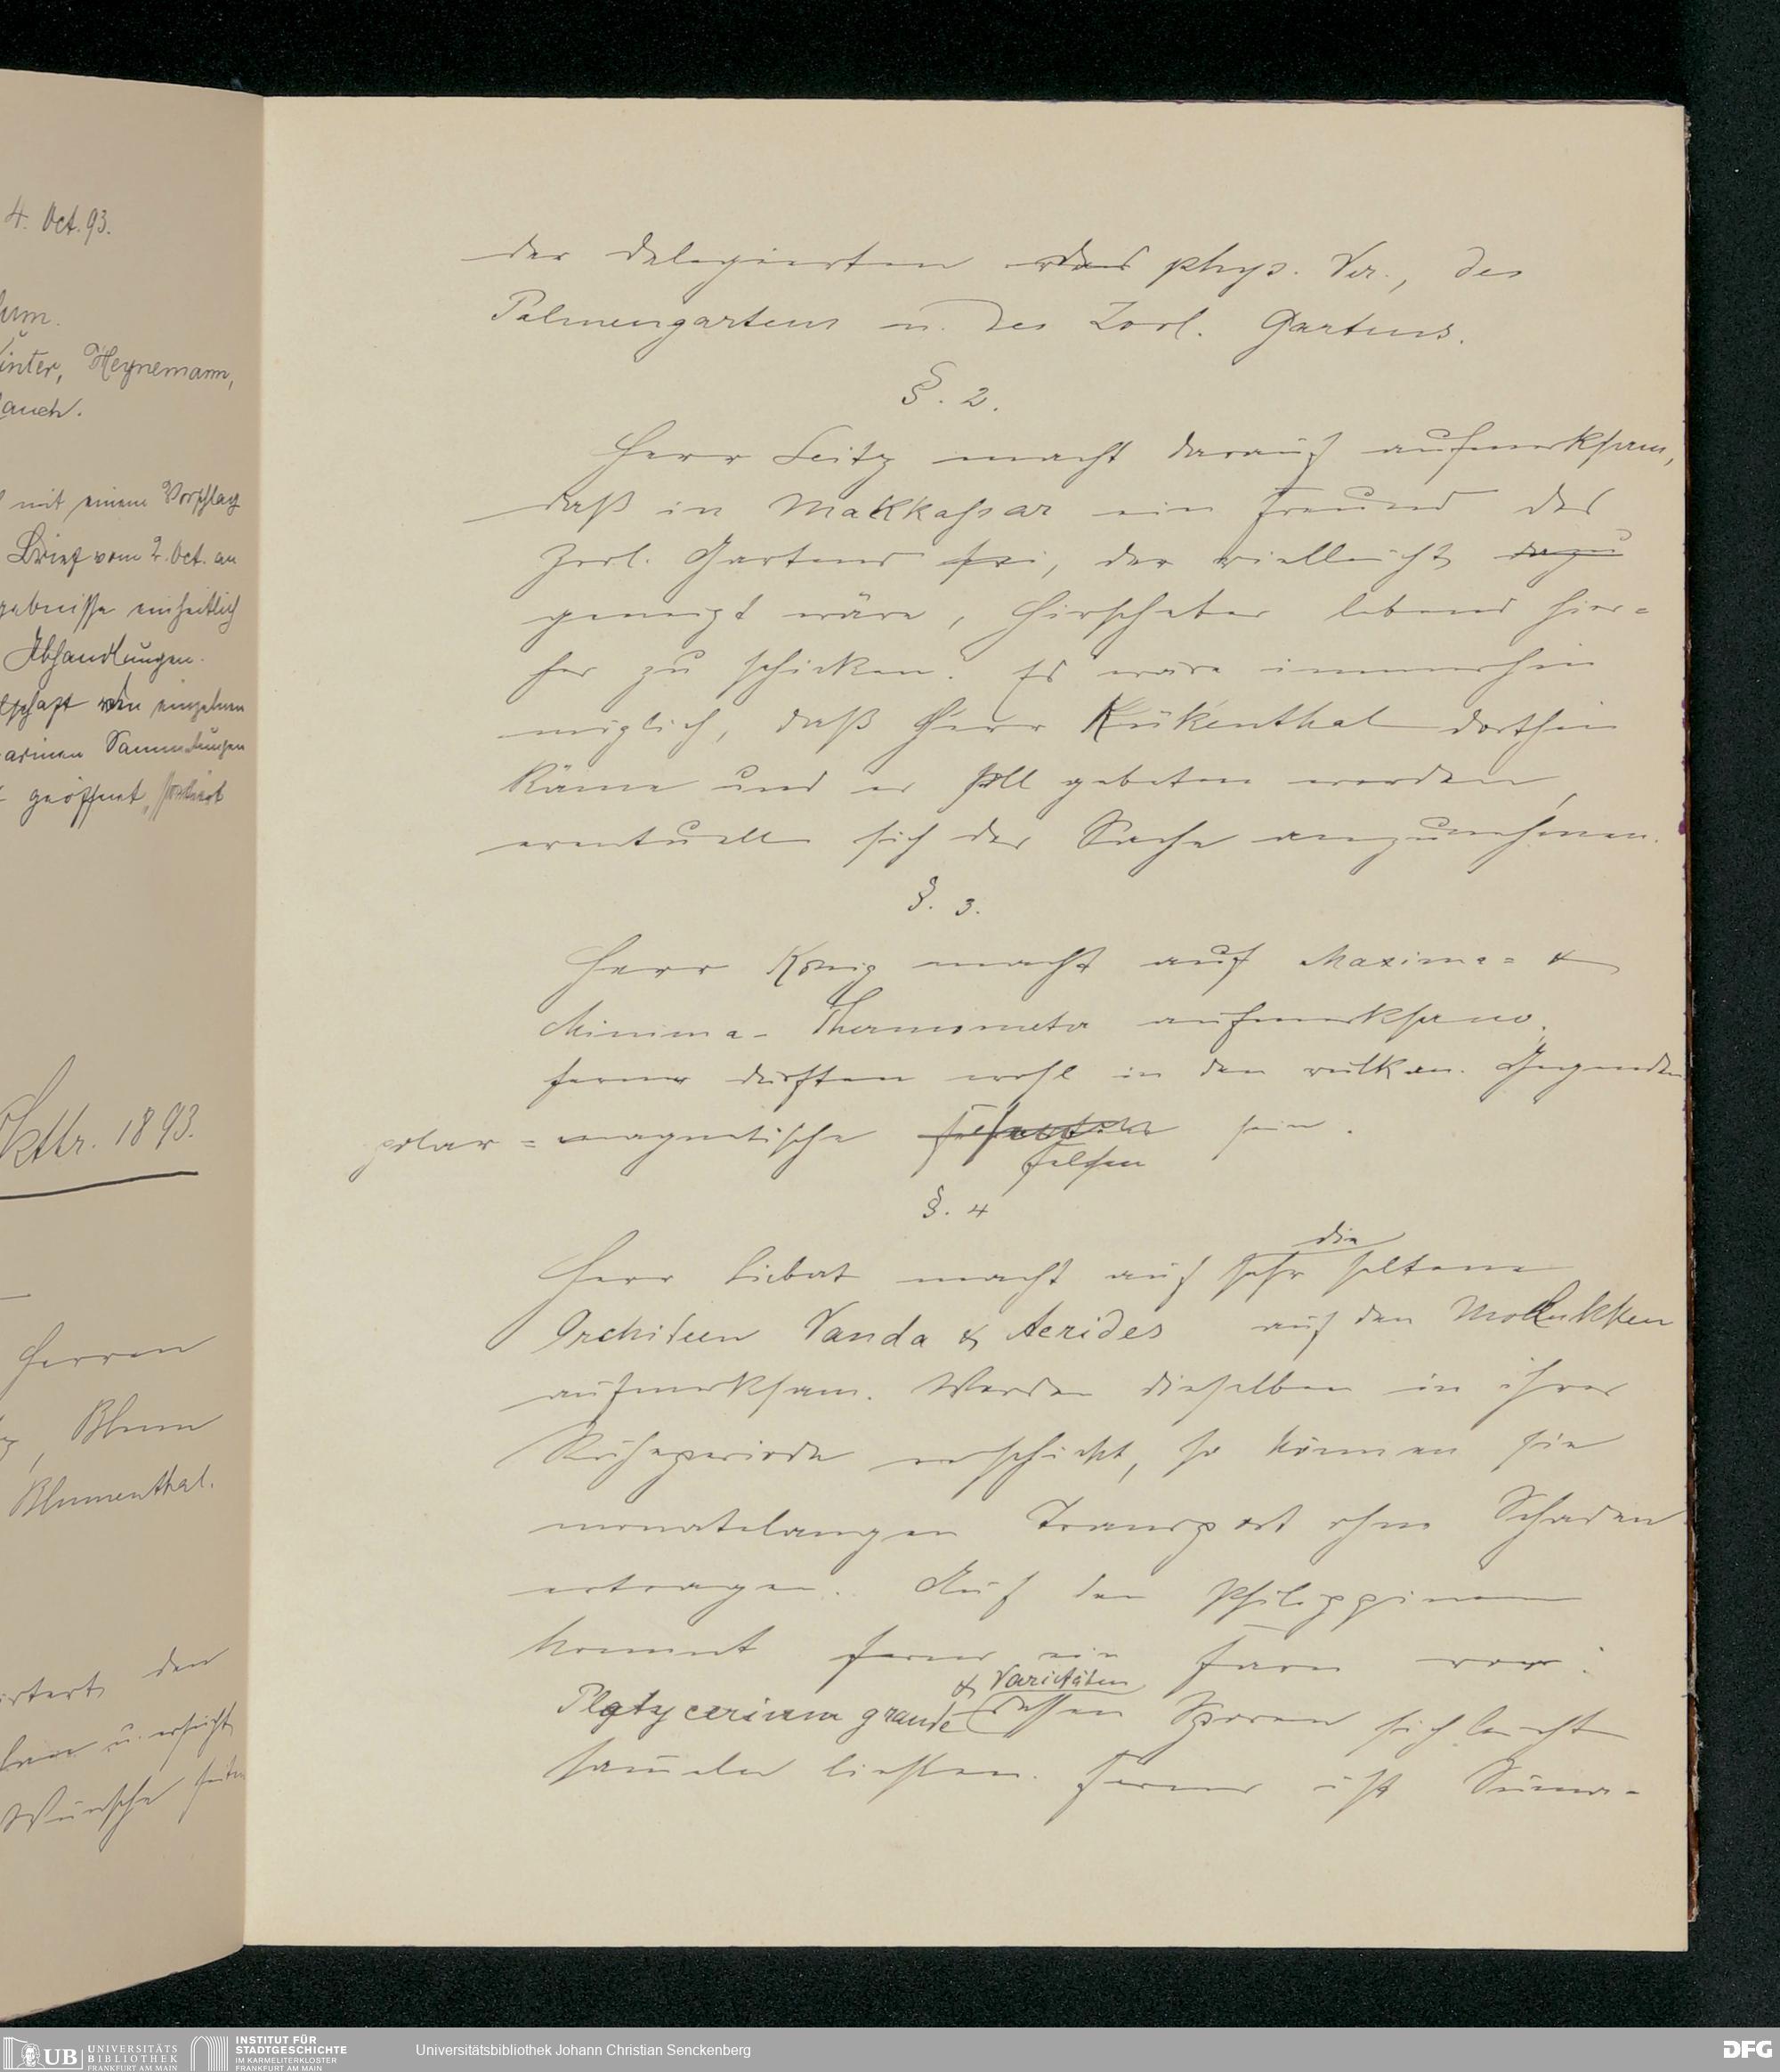 4. Oct. 93.
inter, Heynemann,
mit einem Vorschlag
Brief vom 2. Oct. an
einheitlich
Abhandlungen.
einzelnen
Sammlungen
geöffnet
1893.
Herren
Blum
Blumenthal.
den
u. ersucht
Wünsche seiten
der Delegierten des phys. Ver., des
Palmengartens u. des Zool. Gartens.
§. 2.
Herr Seitz macht darauf aufmerksam,
daß in Makkassar ein Freund des
Zool. Gartens sei, der vielleicht dazu
geneigt wäre, Hirscheber lebend hier=
her zu schicken. Es wäre immerhin
möglich, daß Herr Kükenthal dorthin
käme und er soll gebeten werden,
eventuell sich der Sache anzunehmen.
§. 3.
Herr König macht auf Maxima= &
Minima- Thermometer aufmerksam.
ferner dürften wohl in den vulkan. Gegenden
polar=magnetische sein.
Felsen
§. 4
die
Herr Siebert macht auf sehr seltene
Orchideen Vanda & Aerides auf den Molukken
aufmerksam. Werden dieselben in ihrer
Ruheperiode verschickt, so können sie
monatelangen Transport ohne Schaden
ertragen. Auf den Philippinen
kommt ferner ein Farn vor:
& Varietäten
Platycerium grande dessen Sporen sich leicht
sam̄eln ließen. Ferner ist Suma-
UB UNIVERSITÄTS
BIBLIOTHEK
FRANKFURT AM MAIN
INSTITUT FÜR
STADTGESCHICHTE
IM KARMELITERKLOSTER
FRANKFURT AM MAIN
Universitätsbibliothek Johann Christian Senckenberg
DFG